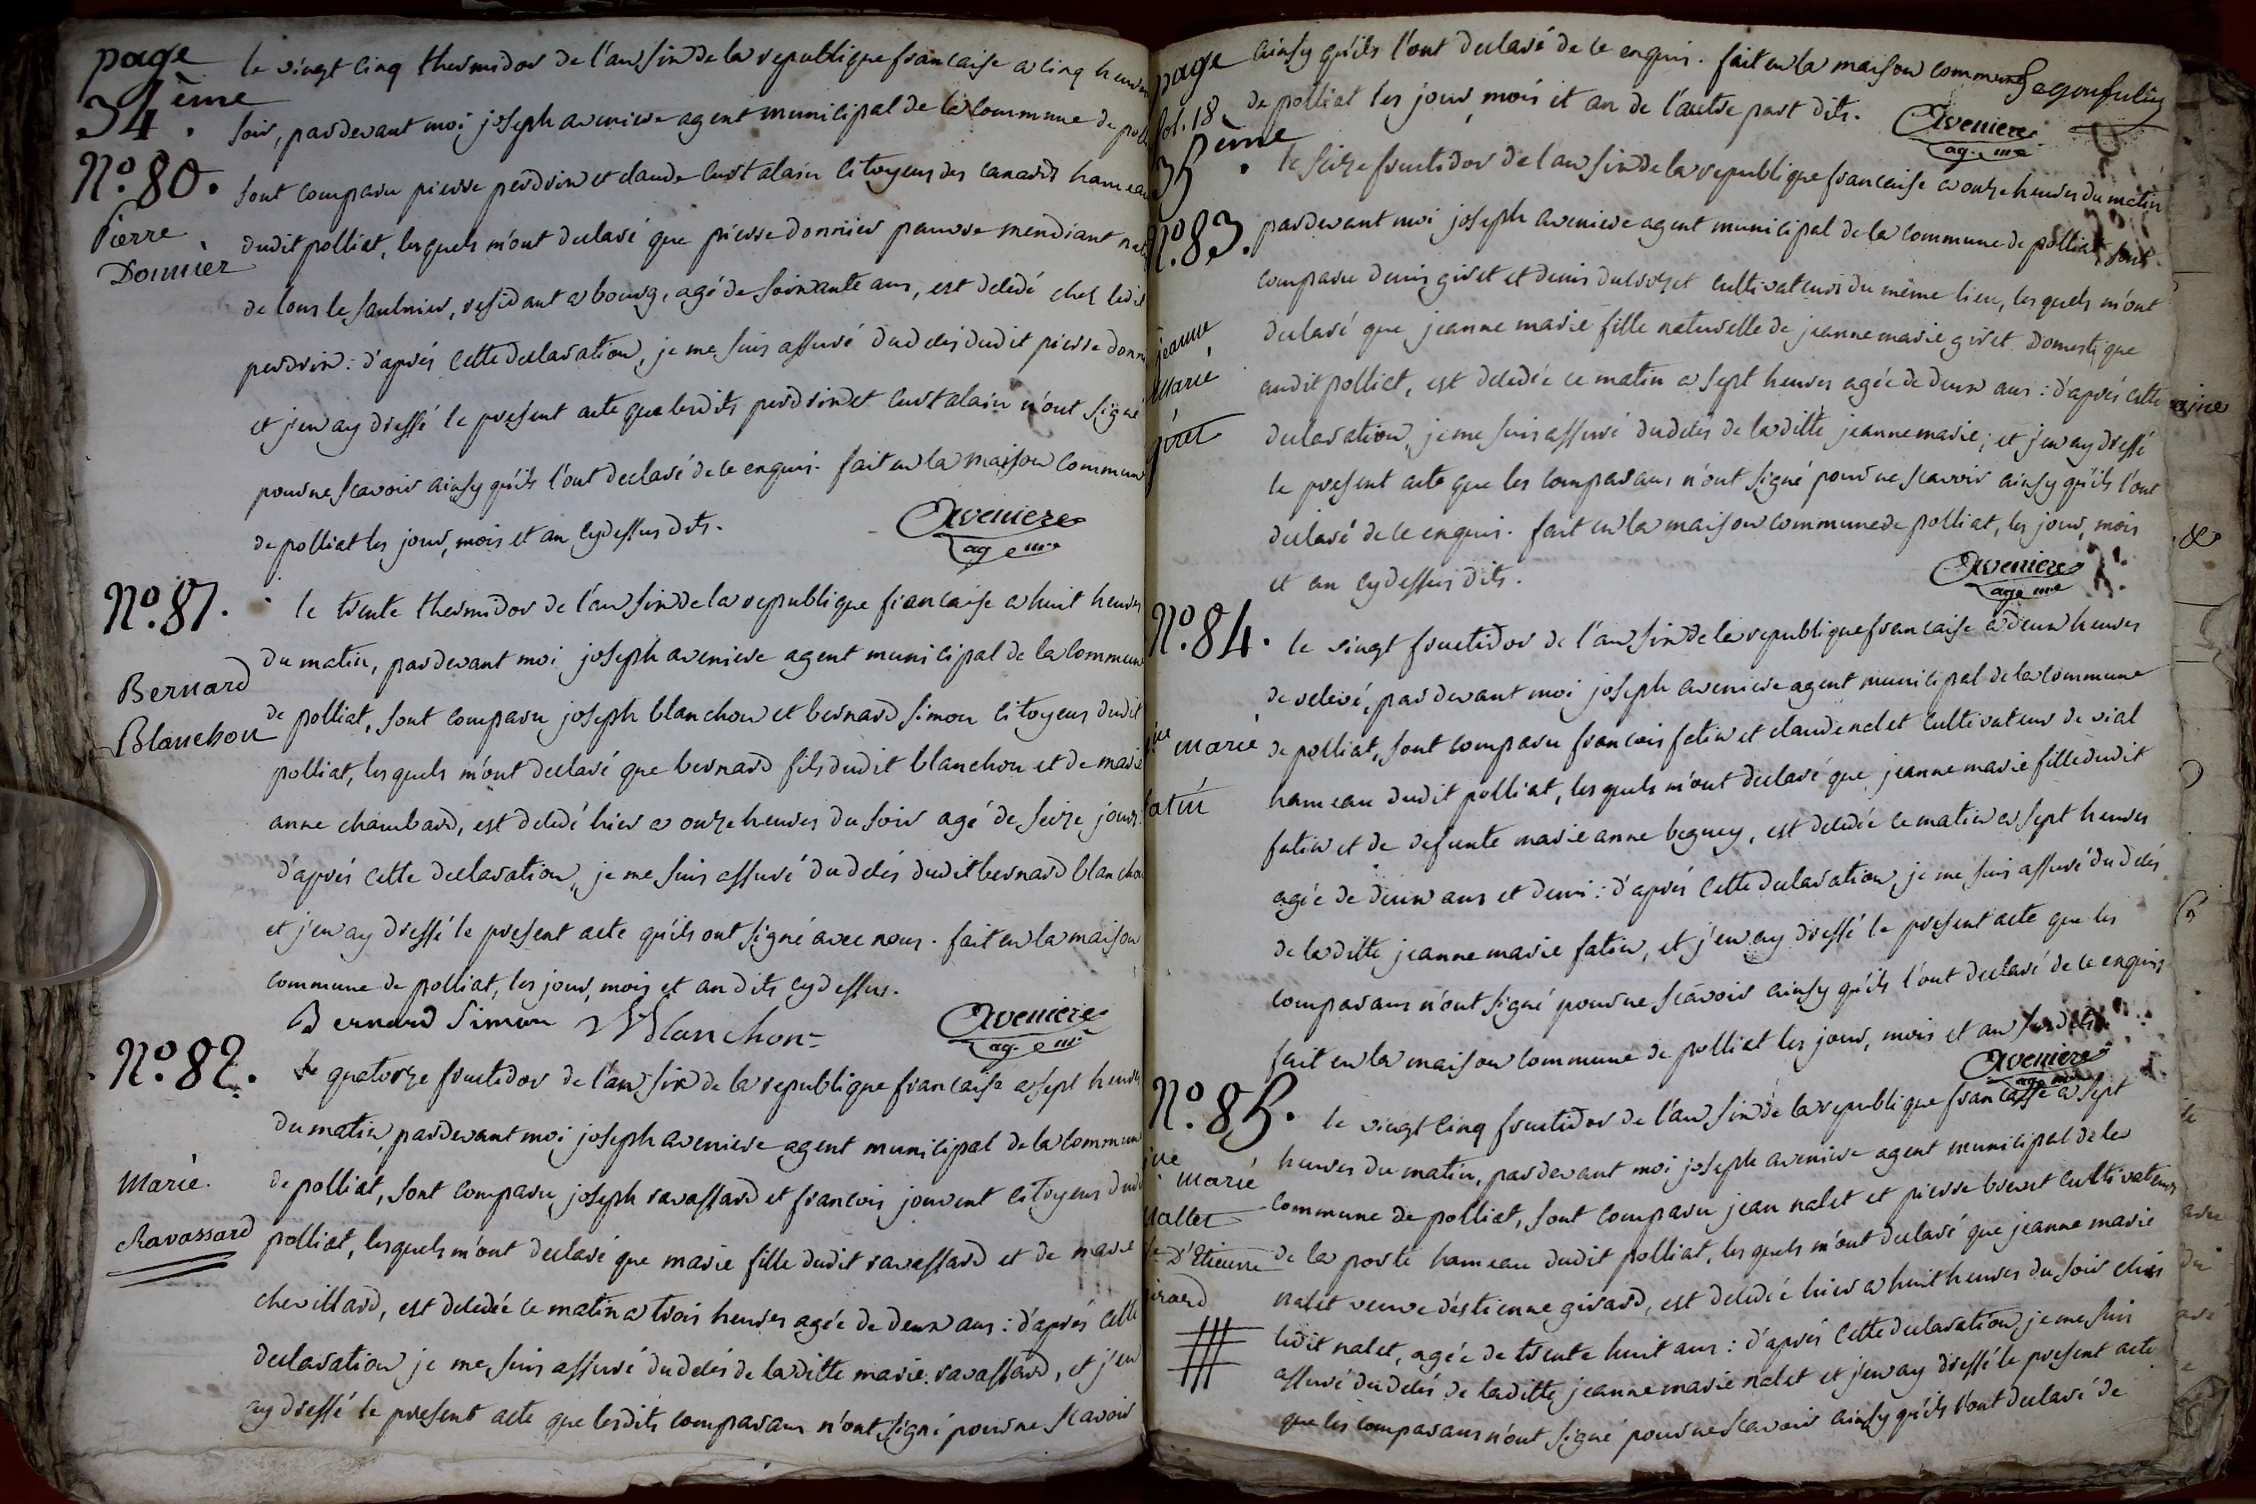 page
34ème.
le vingt cinq thermidor de l'an six de la republique francaise a cinq heures
soir, pardevant moi joseph aveniere agent municipal de la commune de
N°. 80.
sont comparu pierre perdrix et claude curtalain citoyens des canards hameau
Pierre
Donnier
dudit polliat, lesquels m'ont declaré que pierre donnier pauvre mendiant
de lons le saulnier, residant a bourg, agé de soixante ans, est dcédé chez ledit
perdrix: d'aprés cette declaration, je me suis assuré du dcés dudit pierre
et j'en ay dressé le present acte que lesdits perdrix et curtalain n'ont signé
pour ne scavoir ainsy qu'ils l'ont declaré de ce enquis. fait en la maison commune
de polliat les jour, mois et an cydessus dits.
Aveniere
ag. m
N°. 81.
le trente thermidor de l'an six de la republique francaise a huit heures
du matin, pardevant moi joseph aveniere agent municipal de la commune
Bernard
Blanchon
de polliat, sont comparu joseph blanchon et bernard simon citoyens dudit
polliat, lesquels m'ont declaré que bernard fils dudit blanchon et de marie
anne chambard, est dcédé hier a onze heures du soir agé de seize jours:
d'aprés cette declaration, je me suis assuré du dcés dudit bernard blanchon
et j'en ay dressé le present acte qu'ils ont signé avec nous. fait en la maison
commune de polliat, les jour, mois et an dits cydessus.
Bernard Simon Blanchon
Aveniere
ag. m
N°. 82.
Le quatorze fructidor de l'an six de la republique francaise a sept heures
du matin, pardevant moi joseph aveniere agent municipal de la commune
Marie
Ravassard
de polliat, sont comparu joseph ravassard et francois jouvent citoyens dudit
polliat, lesquels m'ont declaré que marie fille dudit ravassard et de marie
chevillard, est dcédée ce matin a trois heures agée de deux ans: d'aprés cette
declaration je me suis assuré du dcés de la ditte marie ravassard, et j'en
ay dressé le present acte que lesdits comparans n'ont signé pour ne scavoir
page
fol. 18
35ème.
ainsy qu'ils l'ont declaré de ce enquis. fait en la maison commune
de polliat les jour, mois et an de l'autre part dits.
Aveniere
ag. m
N°. 83.
le seize fructidor de l'an six de la republique francaise a onze heures du matin
pardevant moi joseph aveniere agent municipal de la commune de polliat, sont
comparu denis giret et denis cultivateurs du même lieu, lesquels m'ont
jeanne
Marie
giret
declaré que jeanne marie fille naturelle de jeanne marie giret domestique
audit polliat, est dcédée ce matin a sept heures agée de deux ans: d'aprés cette
declaration, je me suis assuré du dcés de la ditte jeanne marie; et j'en ay dressé
le present acte que les comparans n'ont signé pour ne scavoir ainsy qu'ils l'ont
declaré de ce enquis. fait en la maison commune de polliat, les jour, mois
et an cydessus dits.
Aveniere
ag. m
N°. 84.
le vingt fructidor de l'an six de la republique francaise a deux heures
de relevé, pardevant moi joseph aveniere agent municipal de la commune
Marie
de polliat, sont comparu francois fatin et claude nalet cultivateurs de vial
hameau dudit polliat, lesquels m'ont declaré que jeanne marie fille dudit
fatin et de defunte marie anne beguey, est dcédée ce matin a sept heures
agée de deux ans et demi: d'aprés cette declaration, je me suis assuré du dcés
de la ditte jeanne marie fatin, et j'en ay dressé le present acte que les
comparans n'ont signé pour ne scavoir ainsy qu'ils l'ont declaré de ce enquis
fait en la maison commune de polliat les jour, mois et an susdits.
Aveniere
N°. 85.
le vingt cinq fructidor de l'an six de la republique francaise a sept
heures du matin, pardevant moi joseph aveniere agent municipal de la
Marie
Nallet
D'Etienne
commune de polliat, sont comparu jean nalet et pierre brevet cultivateurs
de la porte hameau dudit polliat, lesquels m'ont declaré que jeanne marie
nalet veuve d'estienne girard, est dcédée hier a huit heures du soir chés
ledit nalet, agée de trente huit ans: d'aprés cette declaration, je me suis
assuré du dcés de laditte jeanne marie nalet et j'en ay dressé le present acte
que les comparans n'ont signé pour ne scavoir ainsy qu'ils l'ont declaré de